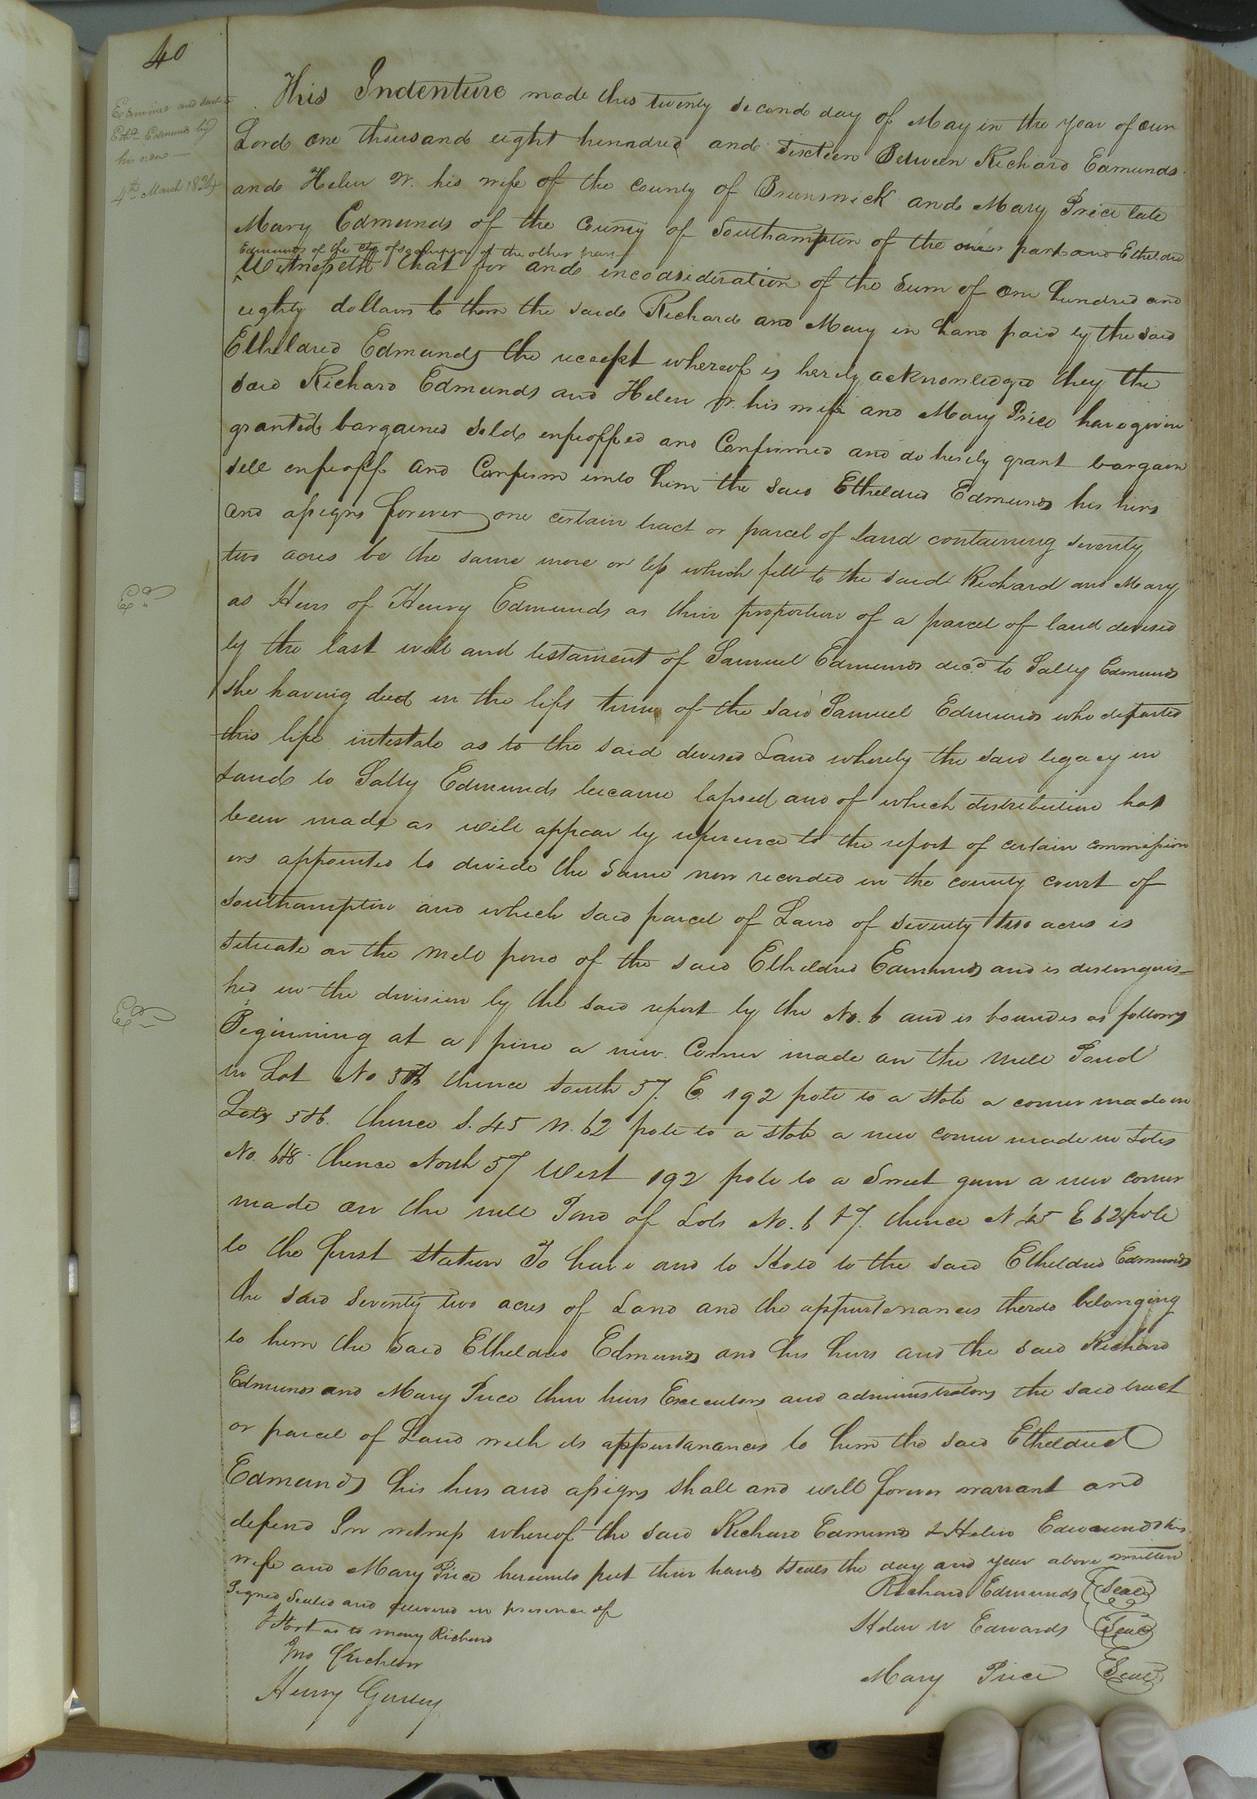 40
Examined and deld to
Ethd. Edmunds by
his son
4th March 1824
This Indenture made this twenty second day of May in the year of our
Lord one thousand eight hundred and sixteen Between Richard Edmunds
and Helen W. his wife of the County of Brunswick and Mary Price late
Mary Edmunds of the County of Southampton of the one part and Etheldred
Edmunds of the Cty of Southampton of the other part
Witnesseth that for and inconsideration of the Sum of one hundred and
eighty dollars to them the said Richard and Mary in hand paid by the said
Etheldred Edmunds the receipt whereof is hereby acknowledged they the
said Richard Edmunds and Helen W. his wife and Mary Price have given
granted bargained sold enfeoffed and Confirmed and do hereby grant bargain
sell enfeoff and Confirm unto him the said Etheldred Edmunds his heirs
and assigns forever one certain tract or parcel of land containing seventy
two acres be the same more or less which fell to the said Richard and Mary
as Heirs of Henry Edmunds as their proportion of a parcel of land devised
by the last will and testament of Samuel Edmunds decd. to Sally Edmunds
she having died in the life time of the said Samuel Edmunds who departed
this life intestate as to the said devised Land whereby the said legacy in
Lands to Sally Edmunds became lapsed and of which distribution has
been made as will appear by reference to the report of certain commission
ers appointed to divide the same now recorded in the county court of
Southampton and which said parcel of Land of seventy two acres is
situate on the Mill pond of the said Etheldred Edmunds and is distinguis-
hed in the division by the said report by the No. 6 and is bounded as follows
Beginning at a pine a new Corner made on the Mill Pond
in Lot No 5&6 thence South 57. E 192 pole to a stake a corner made in
Lots 5&6. thence S. 45 W. 62 pole to a stake a new corner made in Lots
No. 6&8 thence North 57 West 192 pole to a Sweet gum a new corner
made on the mill Pond of Lots No. 6 &7. thence N 45 E 62 pole
to the first station To have and to Hold to the said Etheldred Edmunds
the said seventy two acres of Land and the appurtenances thereto belonging
to him the said Etheldred Edmunds and his heirs and the said Richard
Edmunds and Mary Price their heirs Executors and administrators the said tract
or parcel of Land with its appurtanances to him the said Etheldred
Edmunds his heirs and assigns shall and will forever warrant and
defend In witness whereof the said Richard Edmunds & Helen Edmunds his
wife and Mary Price hereunto put their hands & seals the day and year above written
Signed Sealed and delivered in presence of
Richard Edmunds (Seal)
as to Mary Richard
Helen W Edwards (Seal)
Jno
Henry Gurley
Mary Price (Seal)